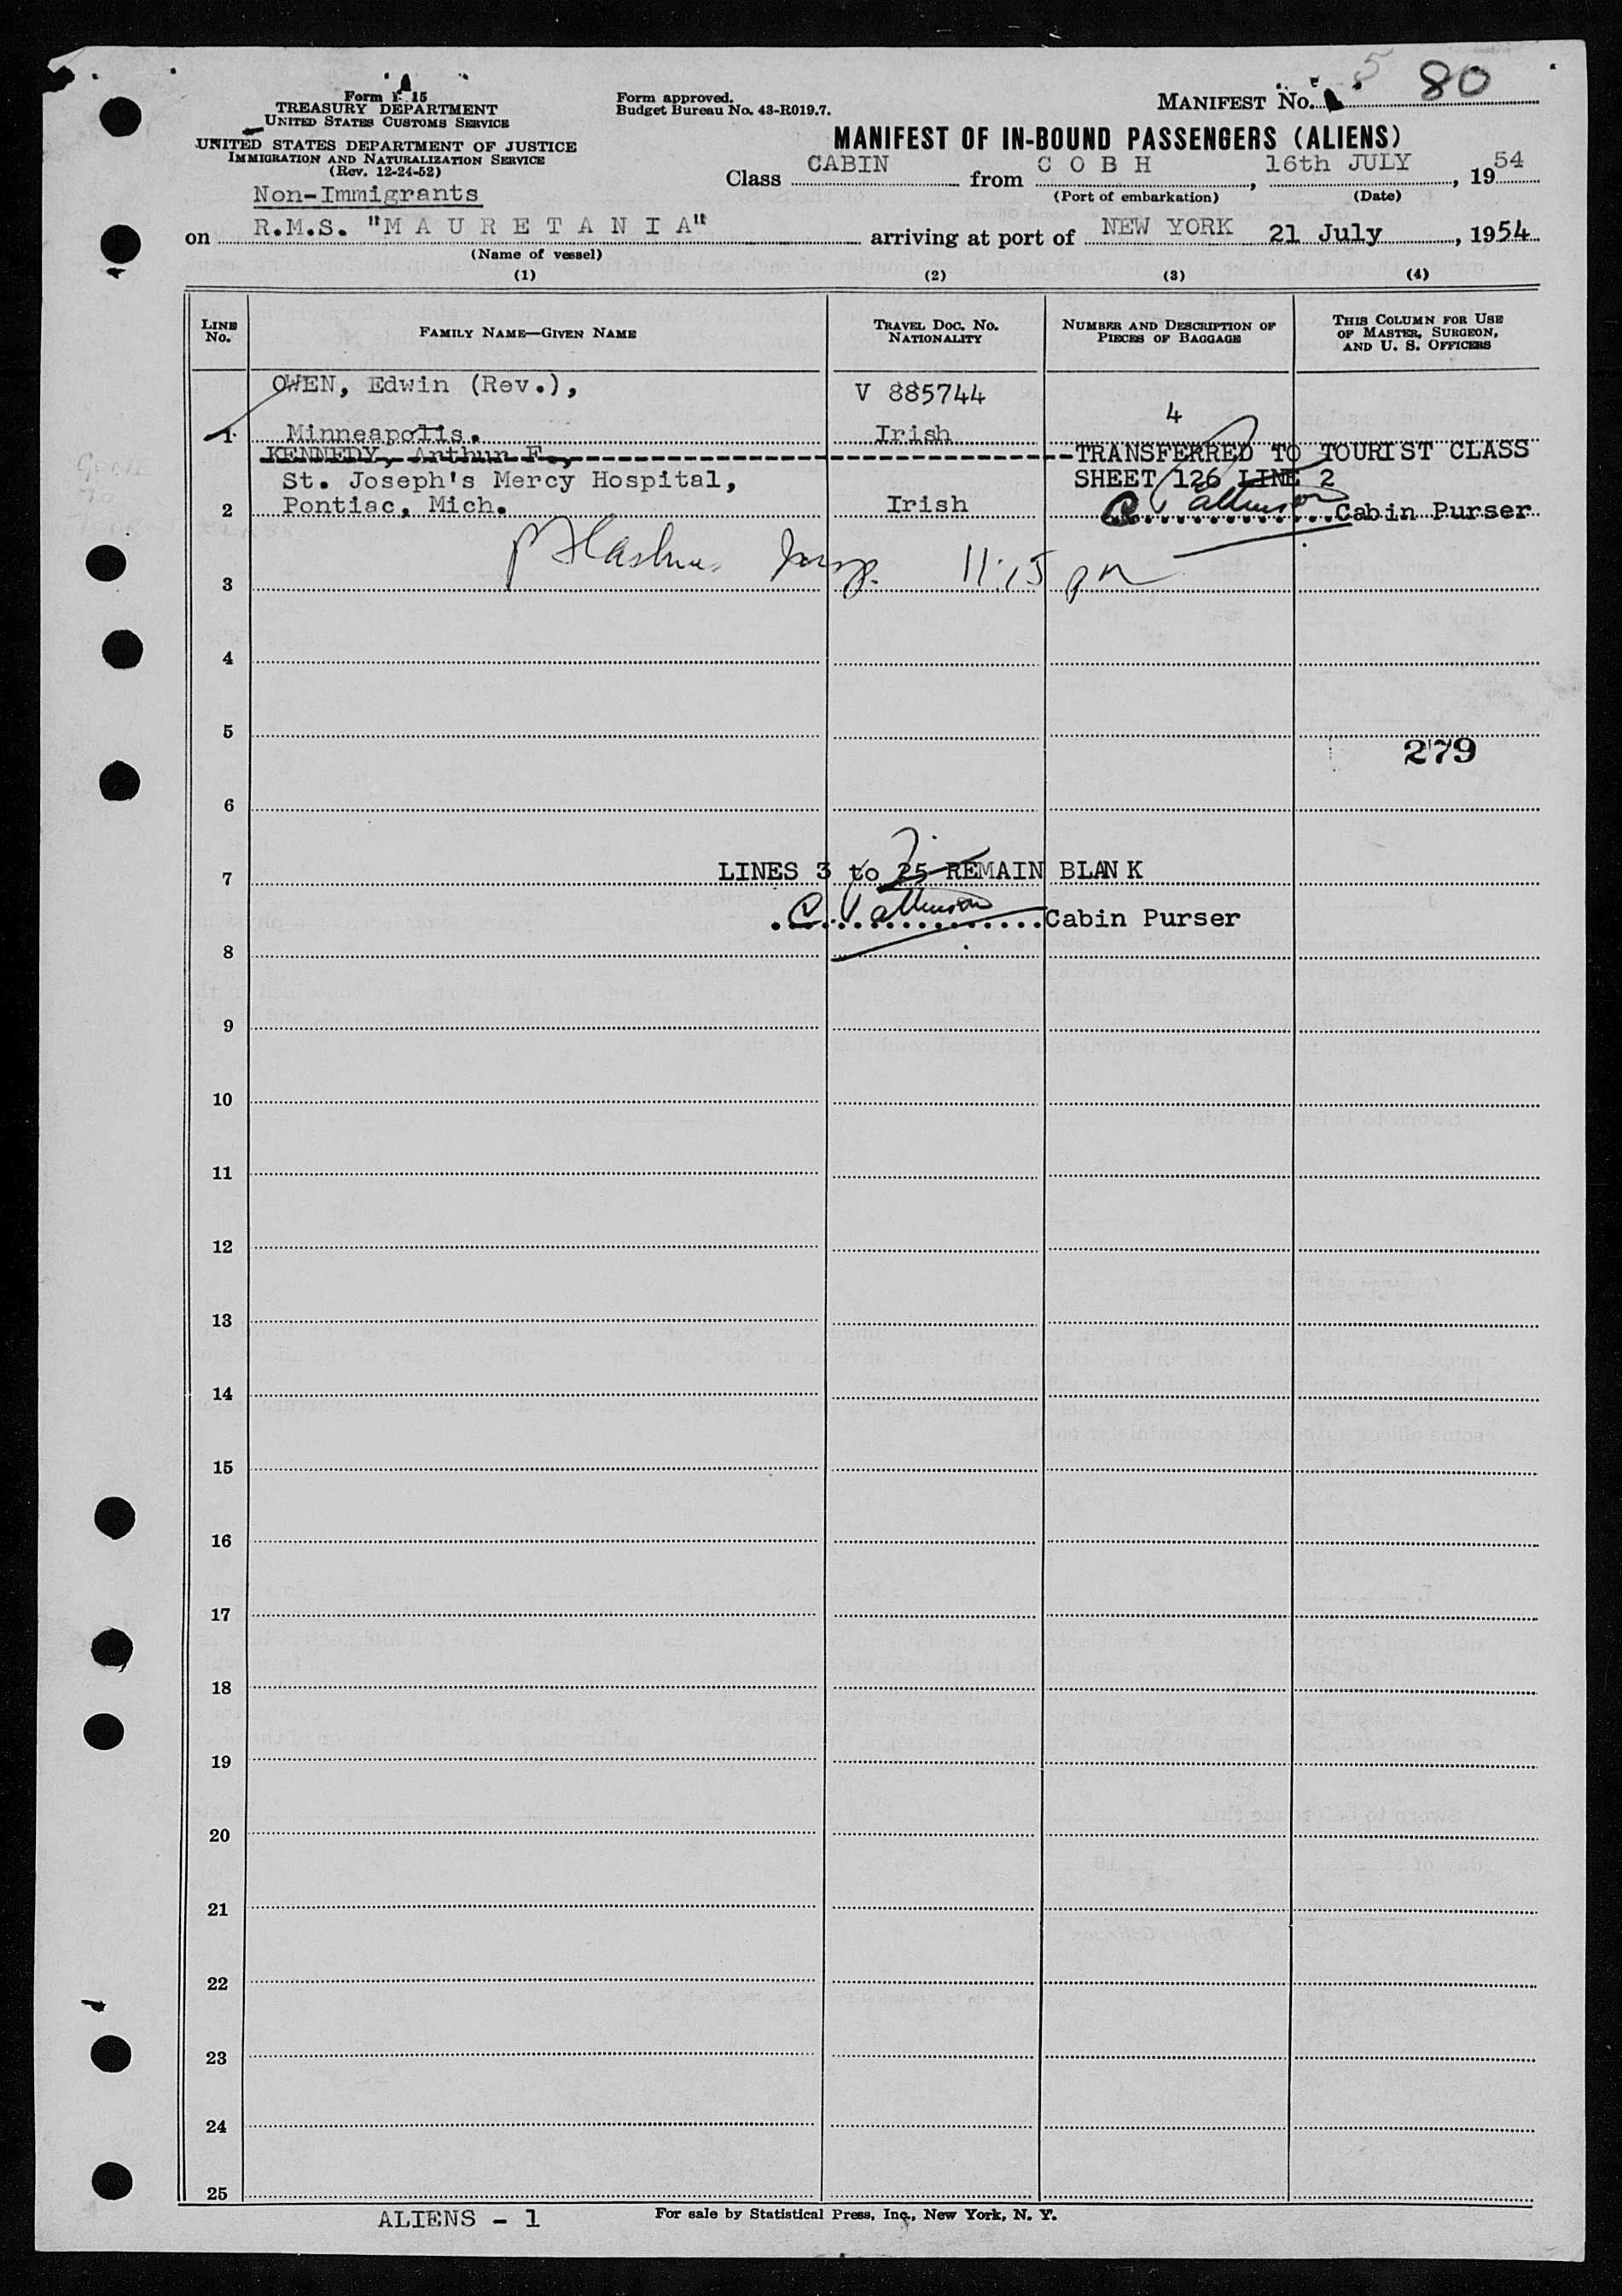 Form I 15
TREASURY DEPARTMENT
UNITED STATES CUSTOMS SERVICE
UNITED STATES DEPARTMENT OF JUSTICE
IMMIGRATION AND NATURALIZATION SERVICE
(Rev. 12-24-52)
Form approved.
Budget Bureau No. 43-R019.7.
MANIFEST No. 5 80
MANIFEST OF IN-BOUND PASSENGERS (ALIENS)
Non-Immigrants
Class CABIN from C O B H, 16th JULY, 1954
(Port of embarkation) (Date)
on R.M.S. "M A U R E T A N I A" arriving at port of NEW YORK 21 July, 1954
(Name of vessel)
(1) (2) (3) (4)
LINE No. FAMILY NAME—GIVEN NAME TRAVEL DOC. No. NATIONALITY NUMBER AND DESCRIPTION OF PIECES OF BAGGAGE THIS COLUMN FOR USE OF MASTER, SURGEON, AND U. S. OFFICERS
OWEN, Edwin (Rev.), V 885744 4
1 Minneapolis. Irish
KENNEDY, Arthur F., TRANSFERRED TO TOURIST CLASS
St. Joseph's Mercy Hospital, SHEET 126 LINE 2
2 Pontiac, Mich. Irish Cabin Purser
11:15 pm
3
4
5
279
6
7 LINES 3 to 25 REMAIN BLANK
Cabin Purser
8
9
10
11
12
13
14
15
16
17
18
19
20
21
22
23
24
25
ALIENS - 1
For sale by Statistical Press, Inc., New York, N. Y.